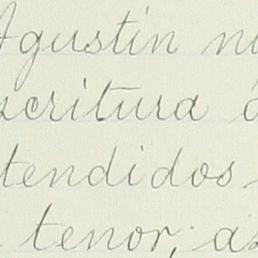 Agustín
scritura
tendidos
tenor;